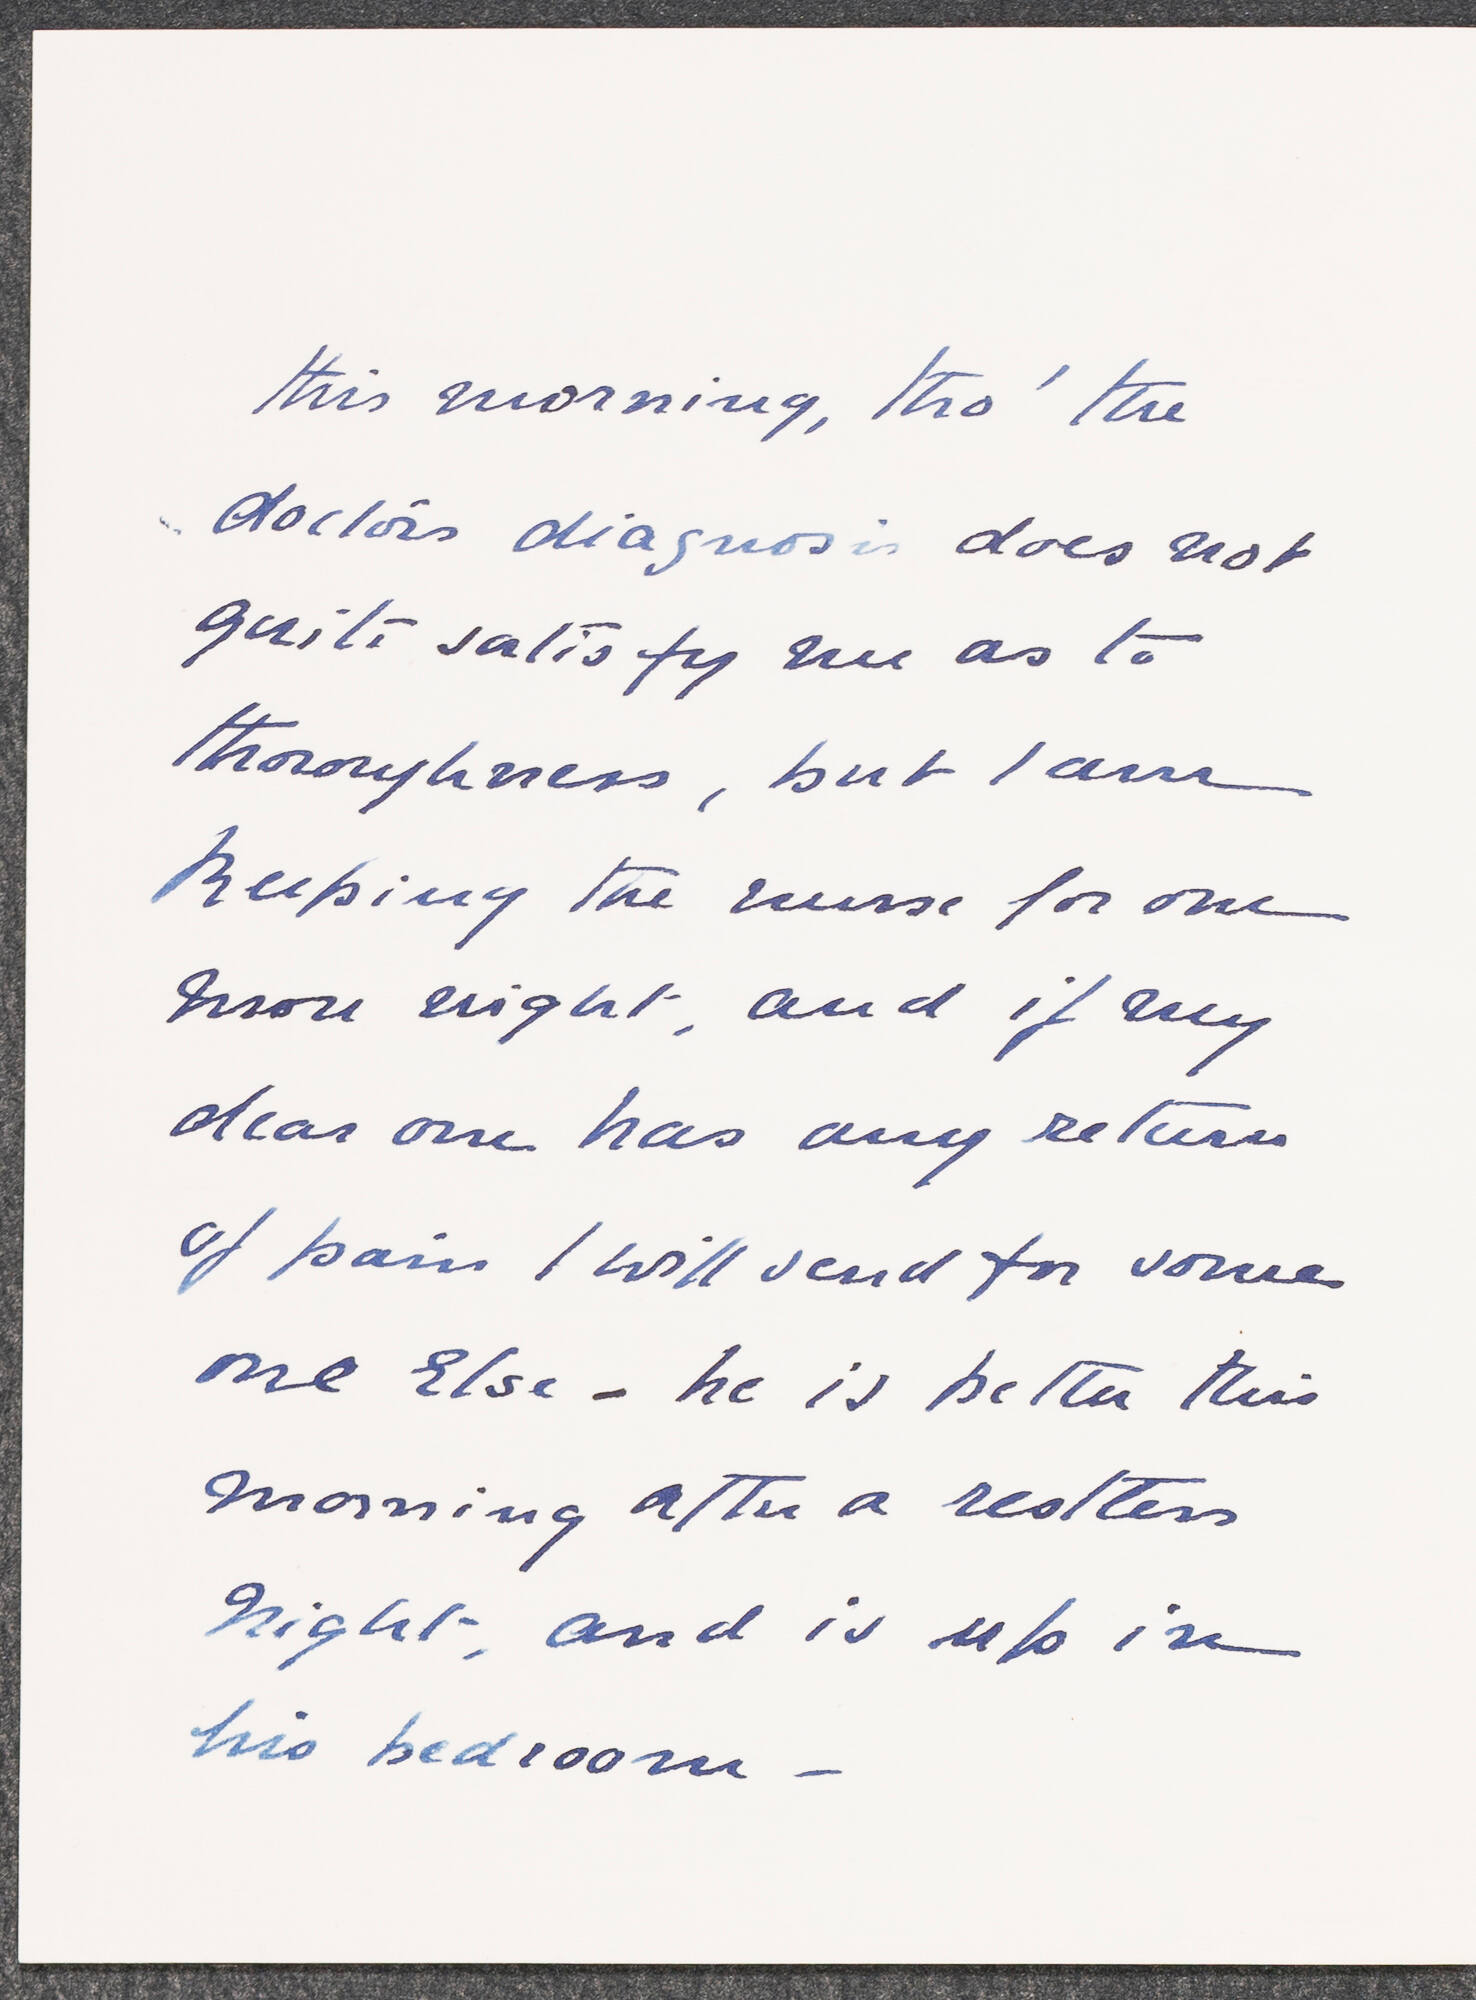 this morning, tho' the
doctors diagnosis does not
quite satisfy me as to
thoroughness, but I am
keeping the nurse for one
more night, and if my
dear one has any return
of pain I will send for some
one Else - he is better this
morning after a restless
night, and is up in
his bedroom -